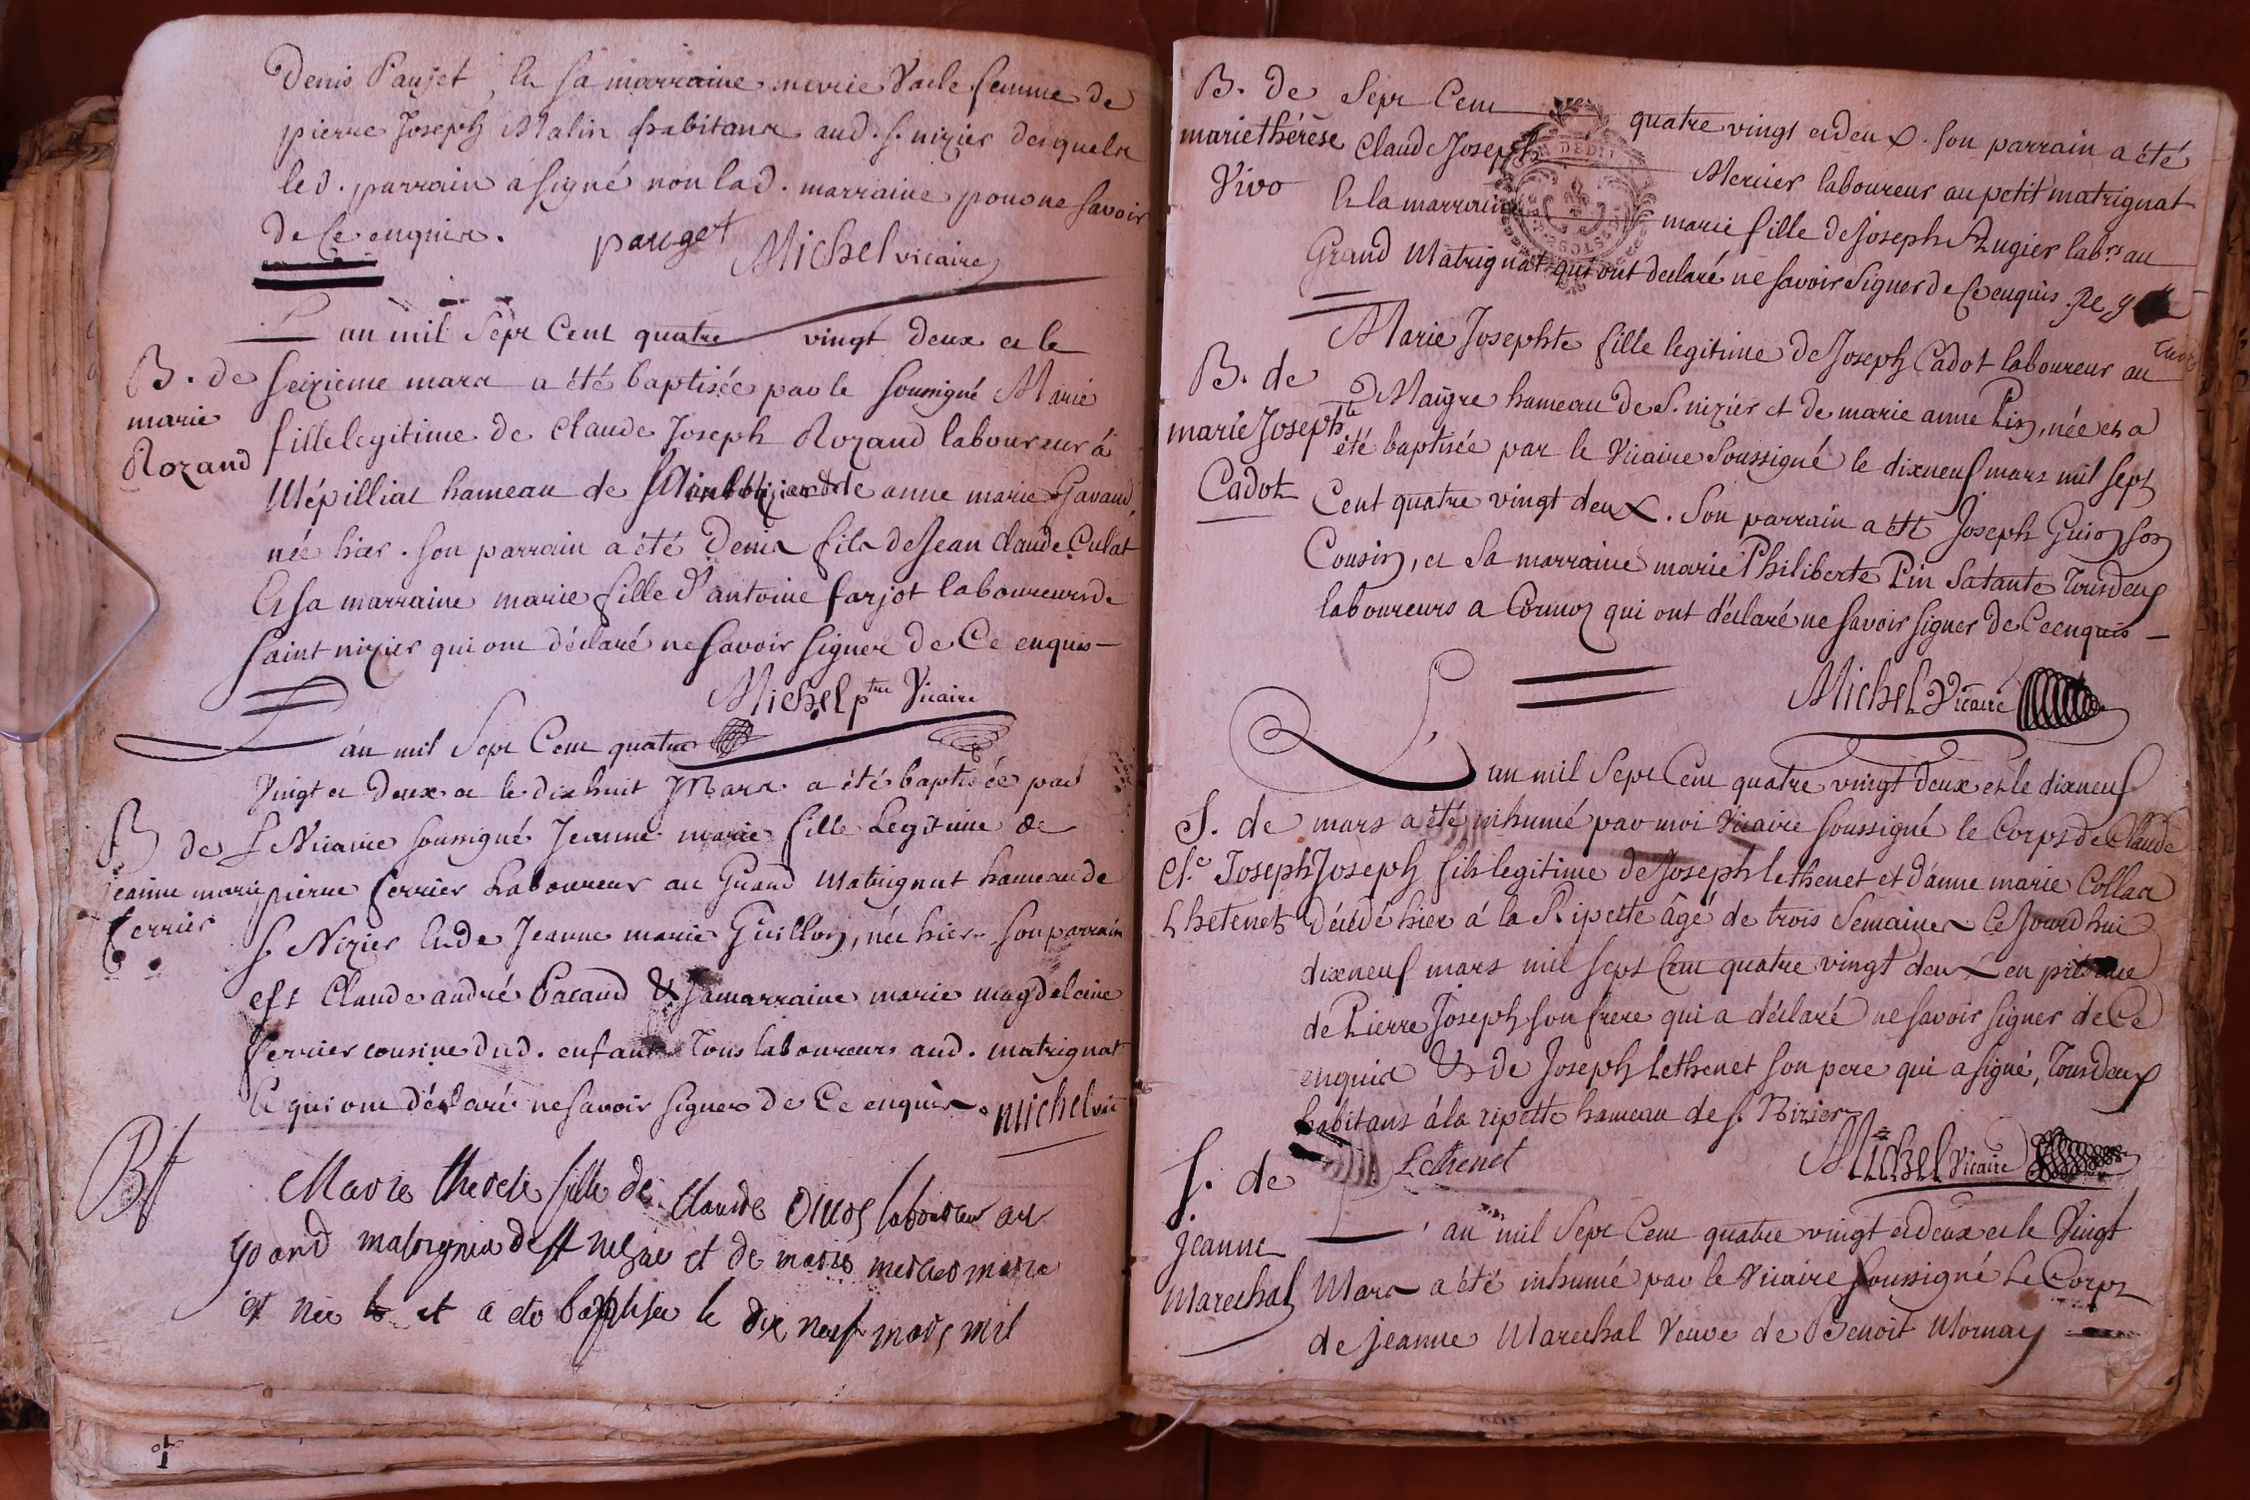 Denis Paujet, et sa marraine marie Vacle femme de
pierre Joseph Malin habitans aud. s. nizier desquels
led. parrain a signé non lad. marraine pour ne savoir
de ce enquise.
pauget
Michel vicaire
L'an mil sept cent quatre vingt deux et le
B. de
marie
Rozand
seizieme mars a été baptisée par le soussigné Marie
fille legitime de claude Joseph Rozand laboureur à
Mépilliat hameau de anne marie Gavand,
née hier. son parrain a été Denis fils de Jean claude Culat
Et sa marraine marie fille d'antoine farjot laboureurs de
saint nizier qui ont déclaré ne savoir signer de ce enquis
Michel ptre Vicaire
L'an mil sept cent quatre
vingt et deux et le dix huit Mars a été baptisée par
B de
jeanne marie
ferrier
le Vicaire soussigné Jeanne marie fille Legitime de
pierre ferrier Laboureur au Grand Matrignat hameau de
s. Nizier et de Jeanne marie Guillon, née hier. son parrain
est Claude andré Pacaud & sa marraine marie magdelaine
ferrier cousine dud. enfant Tous laboureurs aud. matrignat
et qui ont déclaré ne savoir signer de ce enquis.
Michel vic
Bt
Marie therese fille de Claude laboureur au
grand matrignia de st nezie et de marie mercier marie
et née et a eto baptisee le dix neuf mars mil
B. de
marie thérèse
Vivo
sept cent quatre vingt et deux. son parrain a été
Claude Joseph Mercier laboureur au petit matrignat
Et la marraine marie fille de Joseph Augier labrs au
Grand Matrignat qui ont declaré ne savoir signer de ce enquis.
B. de
marie Josephte
Cadot
Marie Josephte fille legitime de Joseph Cadot laboureur au
Maigre hameau de S. nizier et de marie anne Pin, née et a
été baptisée par le Vicaire Soussigné le dixneuf mars mil sept
Cent quatre vingt deux. Son parrain a été Joseph Guion son
Cousin, et sa marraine marie Philiberte Pin sa tante Tous deux
laboureurs a Cormoz qui ont déclaré ne savoir signer de ce enquis
Michel Vicaire
L'an mil sept Cent quatre vingt deux et le dixneuf
S. de
Cl. Joseph
Lhetenet
mars a été inhumé par moi Vicaire soussigné le Corps de Claude
Joseph fils legitime de Joseph lethenet et d'anne marie Collas
décédé hier à la Ripette âgé de trois semaines Ce Jourd'hui
dixneuf mars mil sept Cent quatre vingt deux en présence
de Pierre Joseph son frere qui a déclaré ne savoir signer de ce
enquis & de Joseph Lethenet son pere qui a signé, Tous deux
habitans à la ripette hameau de s. Nizier
Lethenet
Michel Vicaire
S. de
jeanne
Marechal
L'an mil sept Cent quatre vingt et deux et le Vingt
Mars a été inhumé par le Vicaire Soussigné Le Corps
de jeanne Marechal Veuve de Benoit Mornay